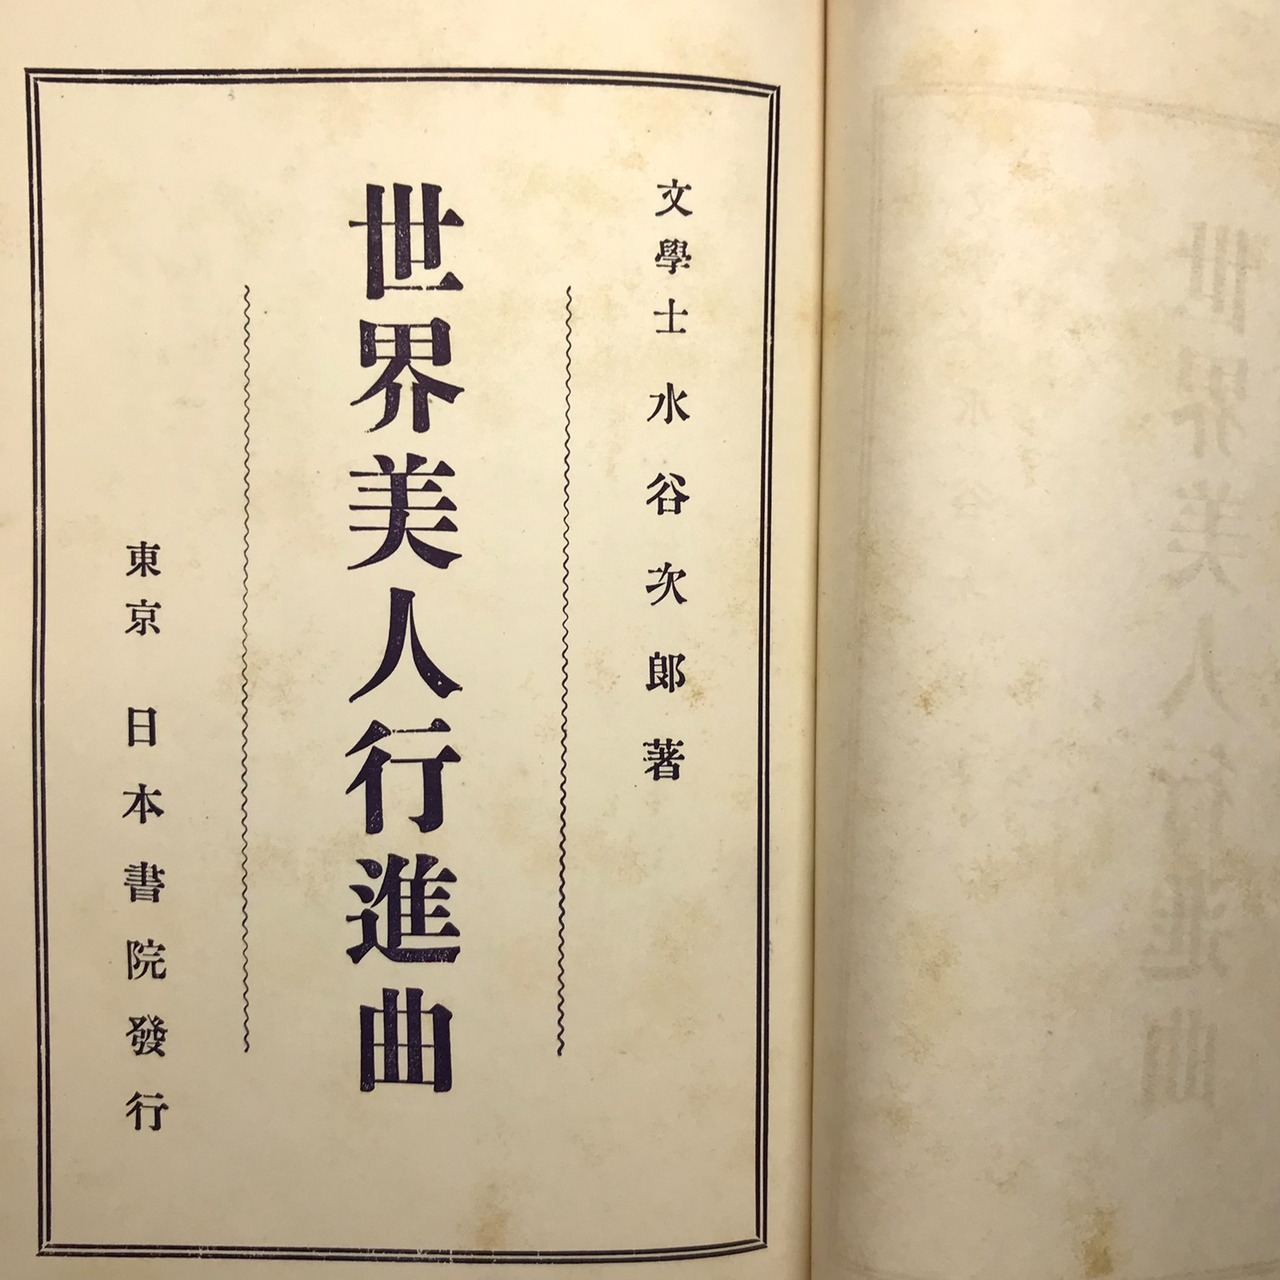 文學士 水谷次郎著
世界美人行進曲
東京 日本書院發行